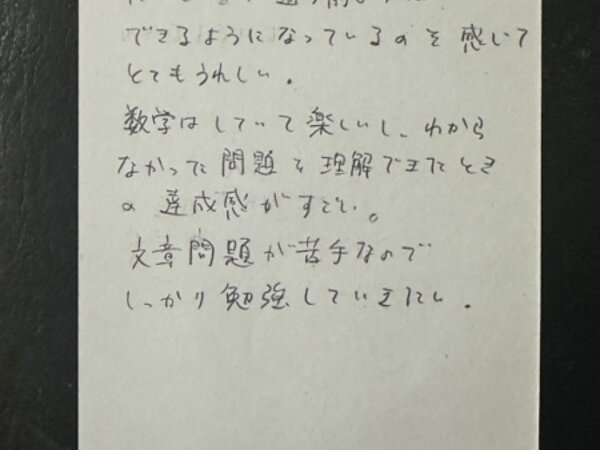 できるようになっているのを感じて
とてもうれしい.
数学はしていて楽しいし、わから
なかった問題を理解できたとき
の達成感がすごい。
文章問題が苦手なので
しっかり勉強していきたい.